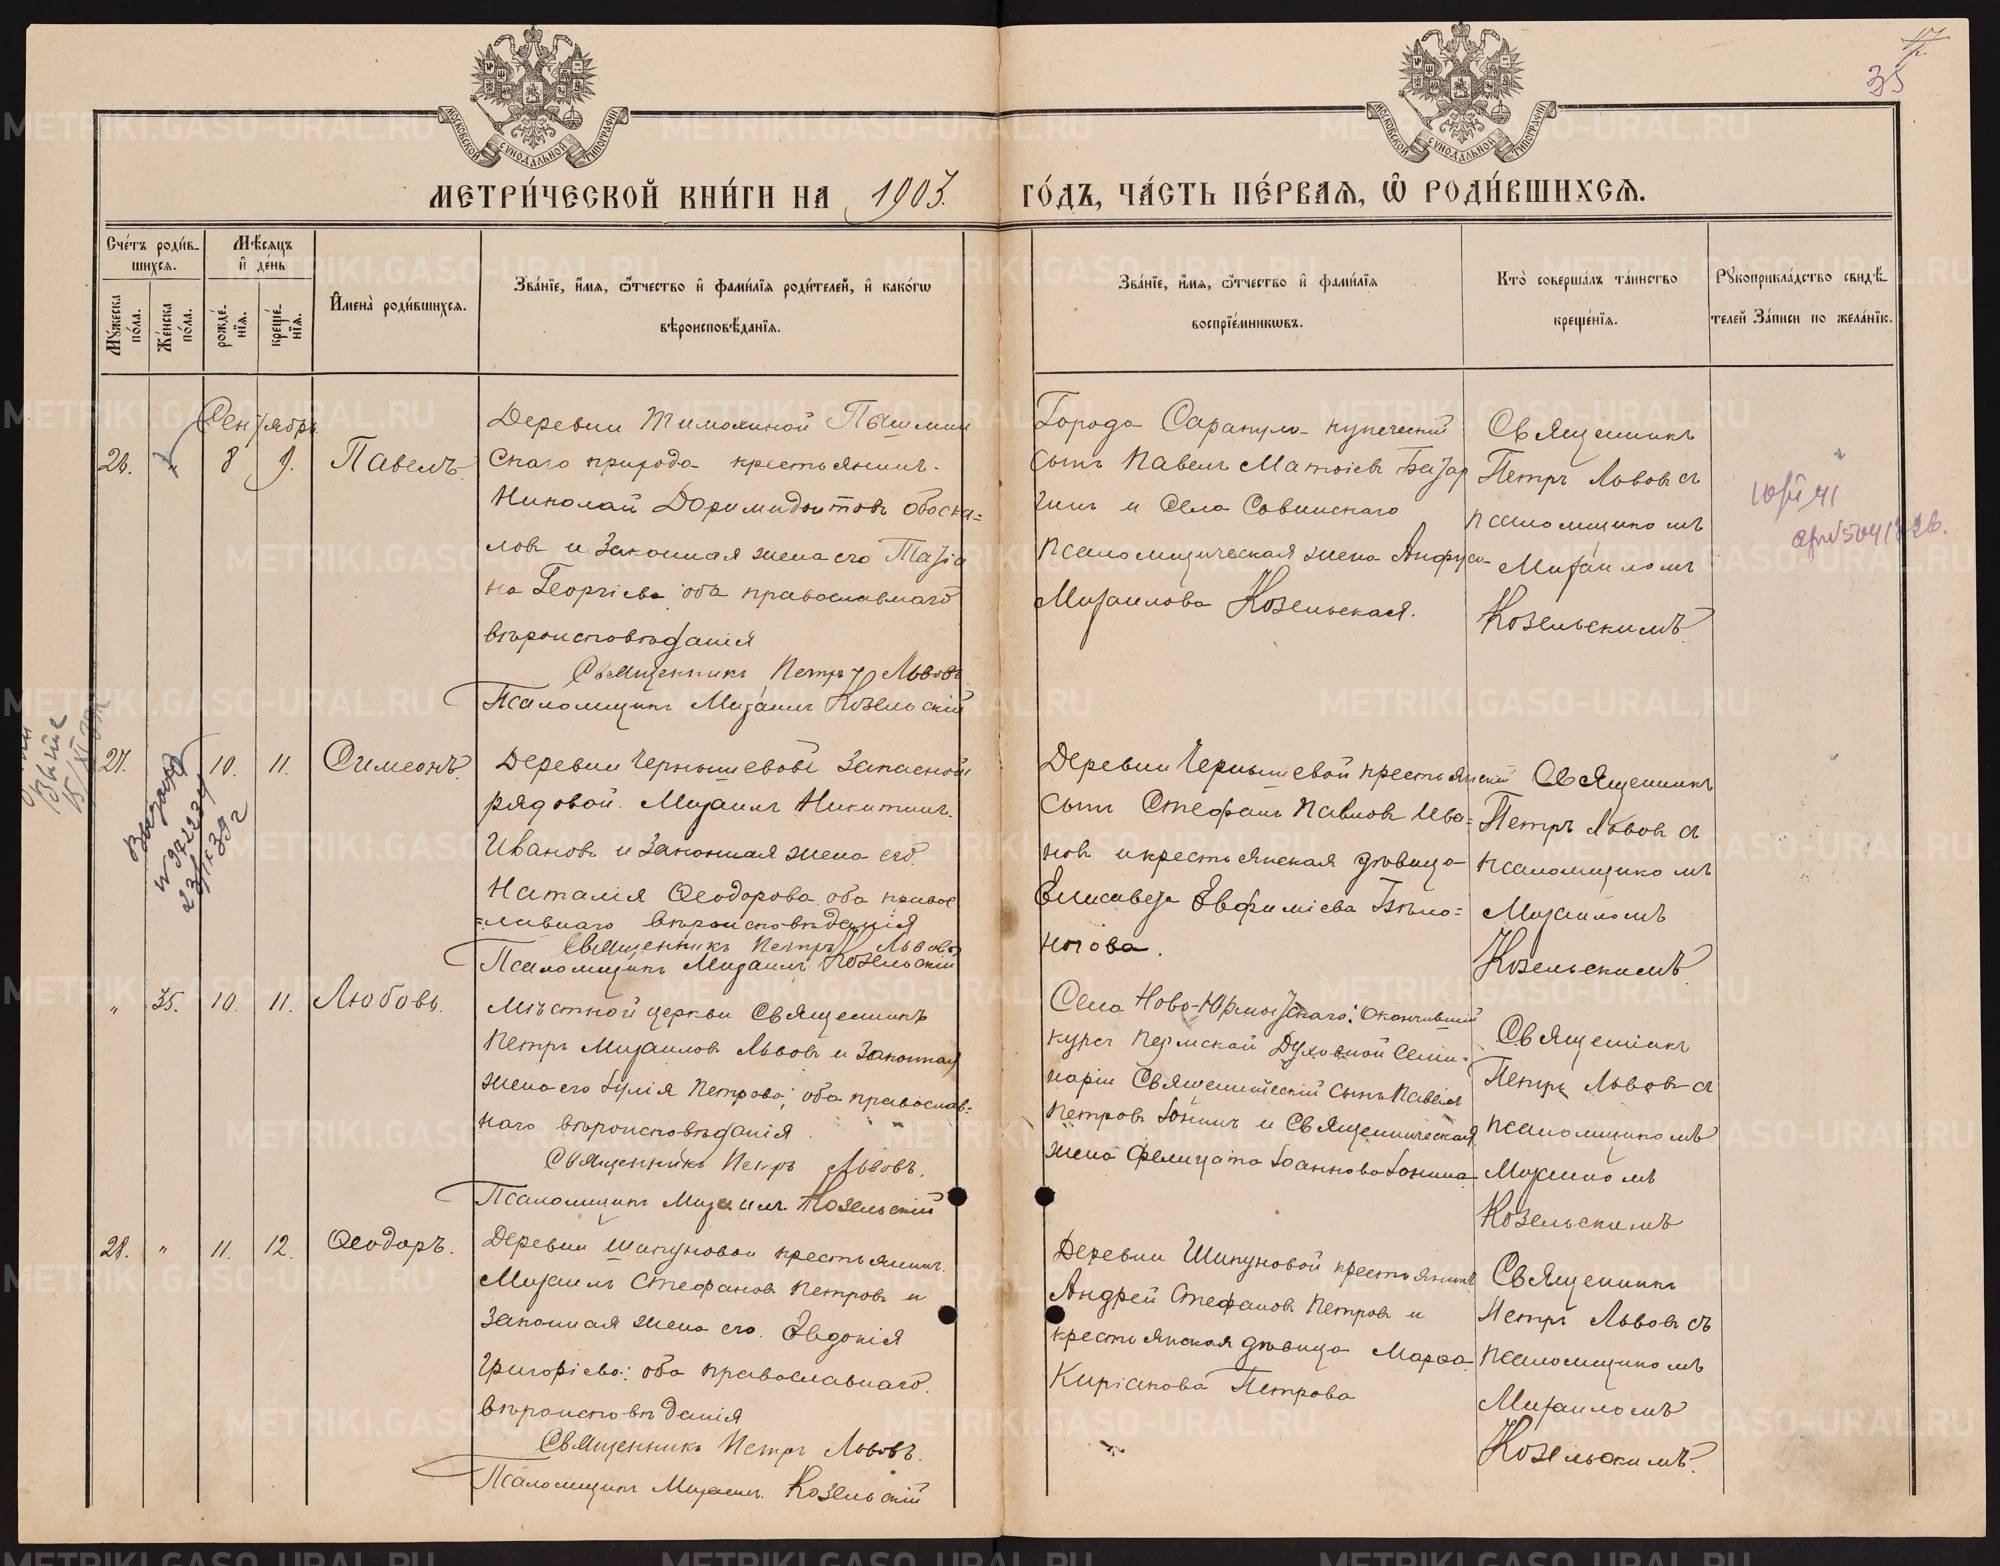 МОСКОВСКОЙ СѴНОДАЛЬНОЙ ТИПОГРАФІИ
МОСКОВСКОЙ СѴНОДАЛЬНОЙ ТИПОГРАФІИ
35
МЕТРИ́ЧЕСКОЙ КНИ́ГИ НА 1903. ГО́ДЪ, ЧА́СТЬ ПЕ́РВАѦ, Ѽ РОДИ́ВШИХСѦ.
Сче́тъ роди́в-
шихсѧ.
Мѣ́сѧцъ
и҆ де́нь
Мꙋ́жеска по́ла.
Же́нска по́ла.
рожде́-
нїѧ.
креще́-
нїѧ.
И҆мена̀ роди́вшихсѧ.
Зва́нїе, и҆́мѧ, ѻ҆́тчество и҆ фами́лїѧ роди́телей, и҆ како́гѡ
вѣроисповѣ́данїѧ.
Зва́нїе, и҆́мѧ, ѻ҆́тчество и҆ фами́лїѧ
воспрїе́мникѡвъ.
Кто̀ соверша́лъ та́инство
креще́нїѧ.
Рꙋкоприкла́дство свидѣ́-
телей за́писи по жела́нїю.
Сентябрь
26.
8
9.
Павелъ.
Деревни Тимохиной Пышмин
скаго прихода крестьянинъ.
Николай Доримидонтовъ Обоска=
ловъ и законная жена его Татіа
на Георгіева оба православнаго
вѣроисповѣданія
Священникъ Петръ Львовъ
Псаломщикъ Михаилъ Козельскій
Города Сарапула купеческій
сынъ Павелъ Матѳіевъ
и Села Совинскаго
псаломщическая жена Анфуса
Михаилова Козельская.
Священникъ
Петръ Львовъ съ
псаломщикомъ
Михаиломъ
Козельскимъ.
27.
10.
11.
Симеонъ.
Деревни Чернышевой запасной
рядовой Михаилъ Никитинъ.
Ивановъ и законная жена его.
Наталія Ѳеодорова оба правос
=лавнаго вѣроисповѣданія
Священникъ Петръ Львовъ
Псаломщикъ Михаилъ Козельскій
Деревни Чернышевой крестьянскій
сынъ Стефанъ Павловъ Ива=
новъ и крестьянская дѣвица
Елисавета Евфиміева Бѣло=
ногова.
Священникъ
Петръ Львовъ съ
псаломщикомъ
Михаиломъ
Козельскимъ
"
35.
10.
11.
Любовь.
Мѣстной церкви Священникъ
Петръ Михаиловъ Львовъ и законная
жена его Іулія Петрова; оба православ=
наго вѣроисповѣданія
Священникъ Петръ Львовъ.
Псаломщикъ Михаилъ Козельскій
Села Ново-Юрмытскаго: окончившій
курсъ Пермской Духовной Семи-
наріи Священническій сынъ Павелъ
Петровъ Іонинъ и Священническая
жена Фелицата Іоаннова Іонина
Священникъ
Петръ Львовъ съ
псаломщикомъ
Михаиломъ
Козельскимъ
28.
"
11.
12.
Ѳеодоръ.
Деревни Шипуновой крестьянинъ.
Михаилъ Стефановъ Петровъ и
законная жена его. Евдокія
Григоріева: оба православнаго.
вѣроисповѣданія
Священникъ Петръ Львовъ.
Псаломщикъ Михаилъ. Козельскій
Деревни Шипуновой крестьянинъ
Андрей Стефановъ Петровъ и
крестьянская дѣвица Марѳа
Киріакова Петрова
Священникъ
Петръ Львовъ съ
псаломщикомъ
Михаиломъ
Козельскимъ.
METRIKI.GASO-URAL.RU